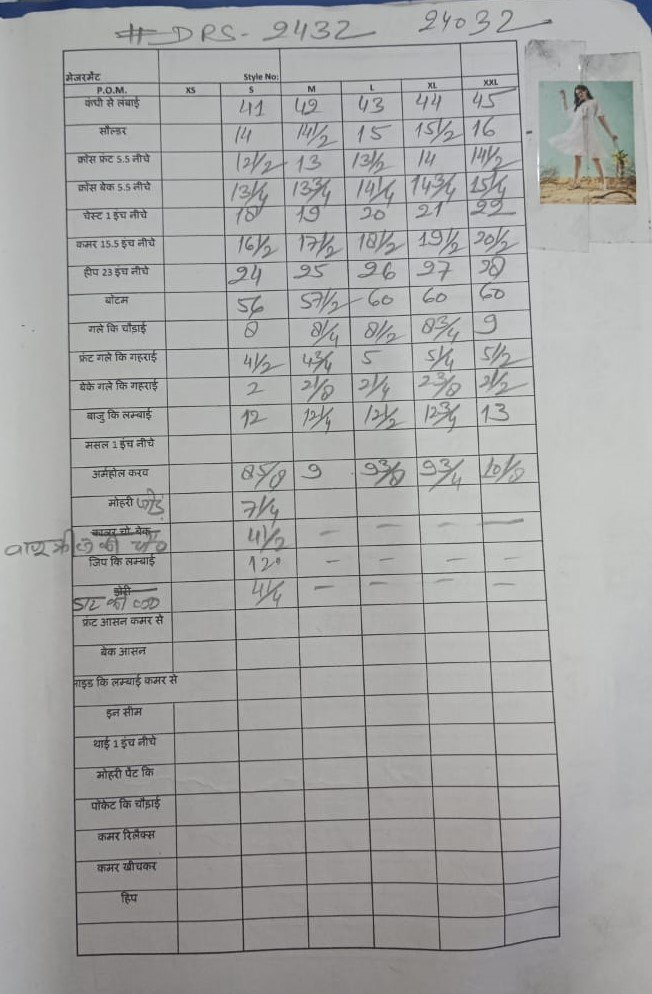 # DRS-2432 24032
मेजरमेंट Style No:
P.O.M. XS S M L XL XXL
कंधी से लंबाई 41 42 43 44 45
सोल्डर 14 14 1/2 15 15 1/2 16
क्रॉस फ्रंट 5.5 नीचे 12 1/2 13 13 1/2 14 14 1/2
क्रॉस बेक 5.5 नीचे 13 1/4 13 3/4 14 1/4 14 3/4 15 1/4
चेस्ट 1 इंच नीचे 18 19 20 21 22
कमर 15.5 इंच नीचे 16 1/2 17 1/2 18 1/2 19 1/2 20 1/2
हीप 23 इंच नीचे 24 25 26 27 28
बोटम 56 57 1/2 60 60 60
गले कि चौड़ाई 8 8 1/4 8 1/2 8 3/4 9
फ्रंट गले कि गहराई 4 1/2 4 3/4 5 5 1/4 5 1/2
बेके गले कि गहराई 2 2 1/8 2 1/4 2 3/8 2 1/2
बाजु कि लम्बाई 12 12 1/4 12 1/2 12 3/4 13
मसल 1 इंच नीचे
अर्महोल करव 8 5/8 9 9 3/8 9 3/4 10 1/8
मोहरी 7 1/4
कालर चो. बेक 4 1/2 – – – –
जिप कि लम्बाई 12 – – – –
डोरी 4 1/4 – – – –
फ्रंट आसन कमर से
बेक आसन
साइड कि लम्बाई कमर से
इन सीम
थाई 1 इंच नीचे
मोहरी पेंट कि
पोकेट कि चौड़ाई
कमर रिलैक्स
कमर खीचकर
हिप